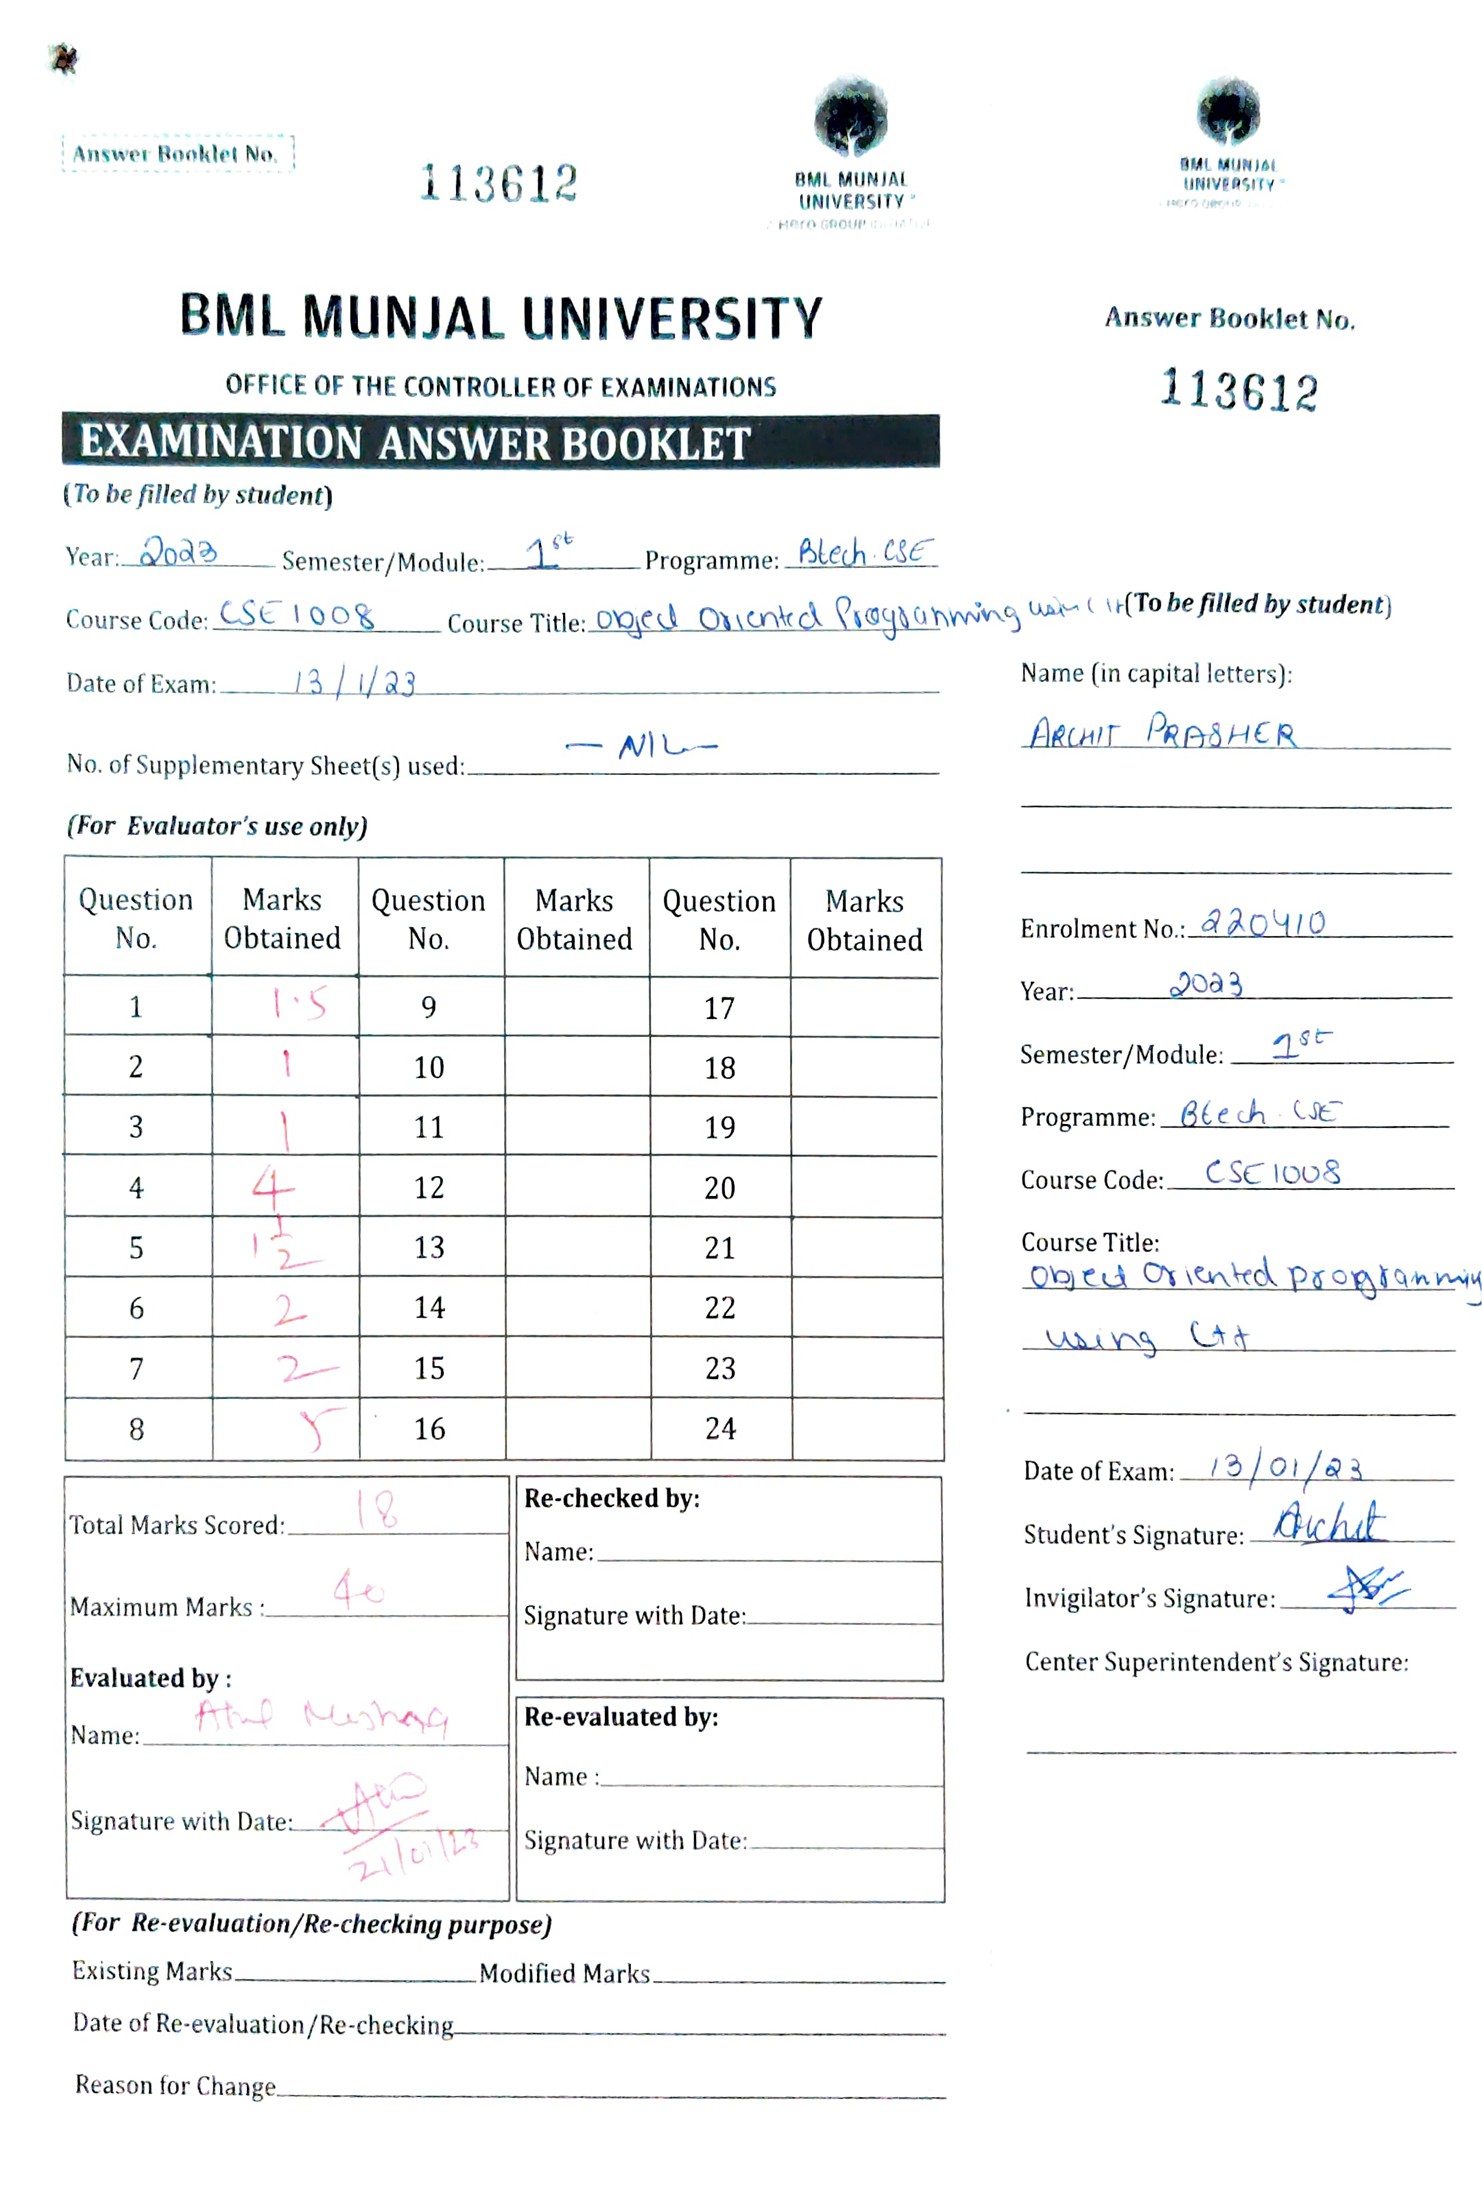 Answer Booklet No.
113612
BML MUNJAL
UNIVERSITY
HERO GROUP INITIATIVE
BML MUNJAL
UNIVERSITY
BML MUNJAL UNIVERSITY
OFFICE OF THE CONTROLLER OF EXAMINATIONS
EXAMINATION ANSWER BOOKLET
(To be filled by student)
Year: 2023 Semester/Module: 1st Programme: Btech. CSE
Course Code: CSE1008 Course Title: Object Oriented Programming using C++
Date of Exam: 13/1/23
No. of Supplementary Sheet(s) used: — NIL —
(For Evaluator's use only)
Question No. Marks Obtained Question No. Marks Obtained Question No. Marks Obtained
1 1.5 9 17
2 1 10 18
3 1 11 19
4 4 12 20
5 1 1/2 13 21
6 2 14 22
7 2 15 23
8 5 16 24
Total Marks Scored: 18
Maximum Marks : 40
Evaluated by :
Name: Atul
Signature with Date:
21/01/23
Re-checked by:
Name:
Signature with Date:
Re-evaluated by:
Name :
Signature with Date:
(For Re-evaluation/Re-checking purpose)
Existing Marks Modified Marks
Date of Re-evaluation/Re-checking
Reason for Change
Answer Booklet No.
113612
(To be filled by student)
Name (in capital letters):
ARCHIT PRASHER
Enrolment No.: 220410
Year: 2023
Semester/Module: 1st
Programme: Btech. CSE
Course Code: CSE1008
Course Title:
Object Oriented programming
using C++
Date of Exam: 13/01/23
Student's Signature: Archit
Invigilator's Signature:
Center Superintendent's Signature: